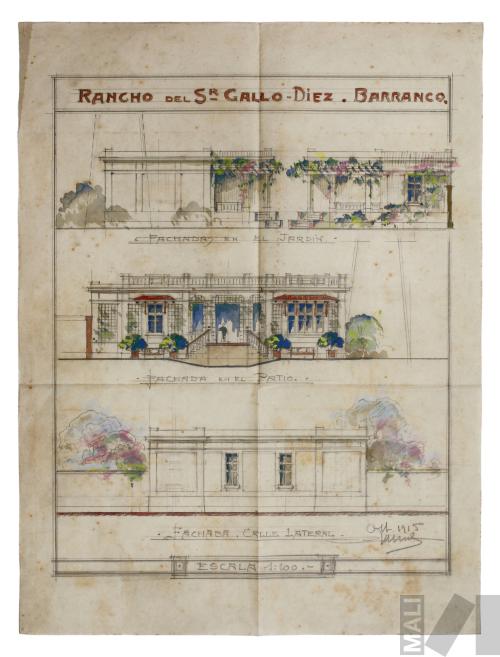 RANCHO DEL SR GALLO-DIEZ. BARRANCO.
FACHADA EN EL JARDIN.
FACHADA EN EL PATIO.
FACHADA. CALLE LATERAL.
1915
ESCALA 1:100.
MALI